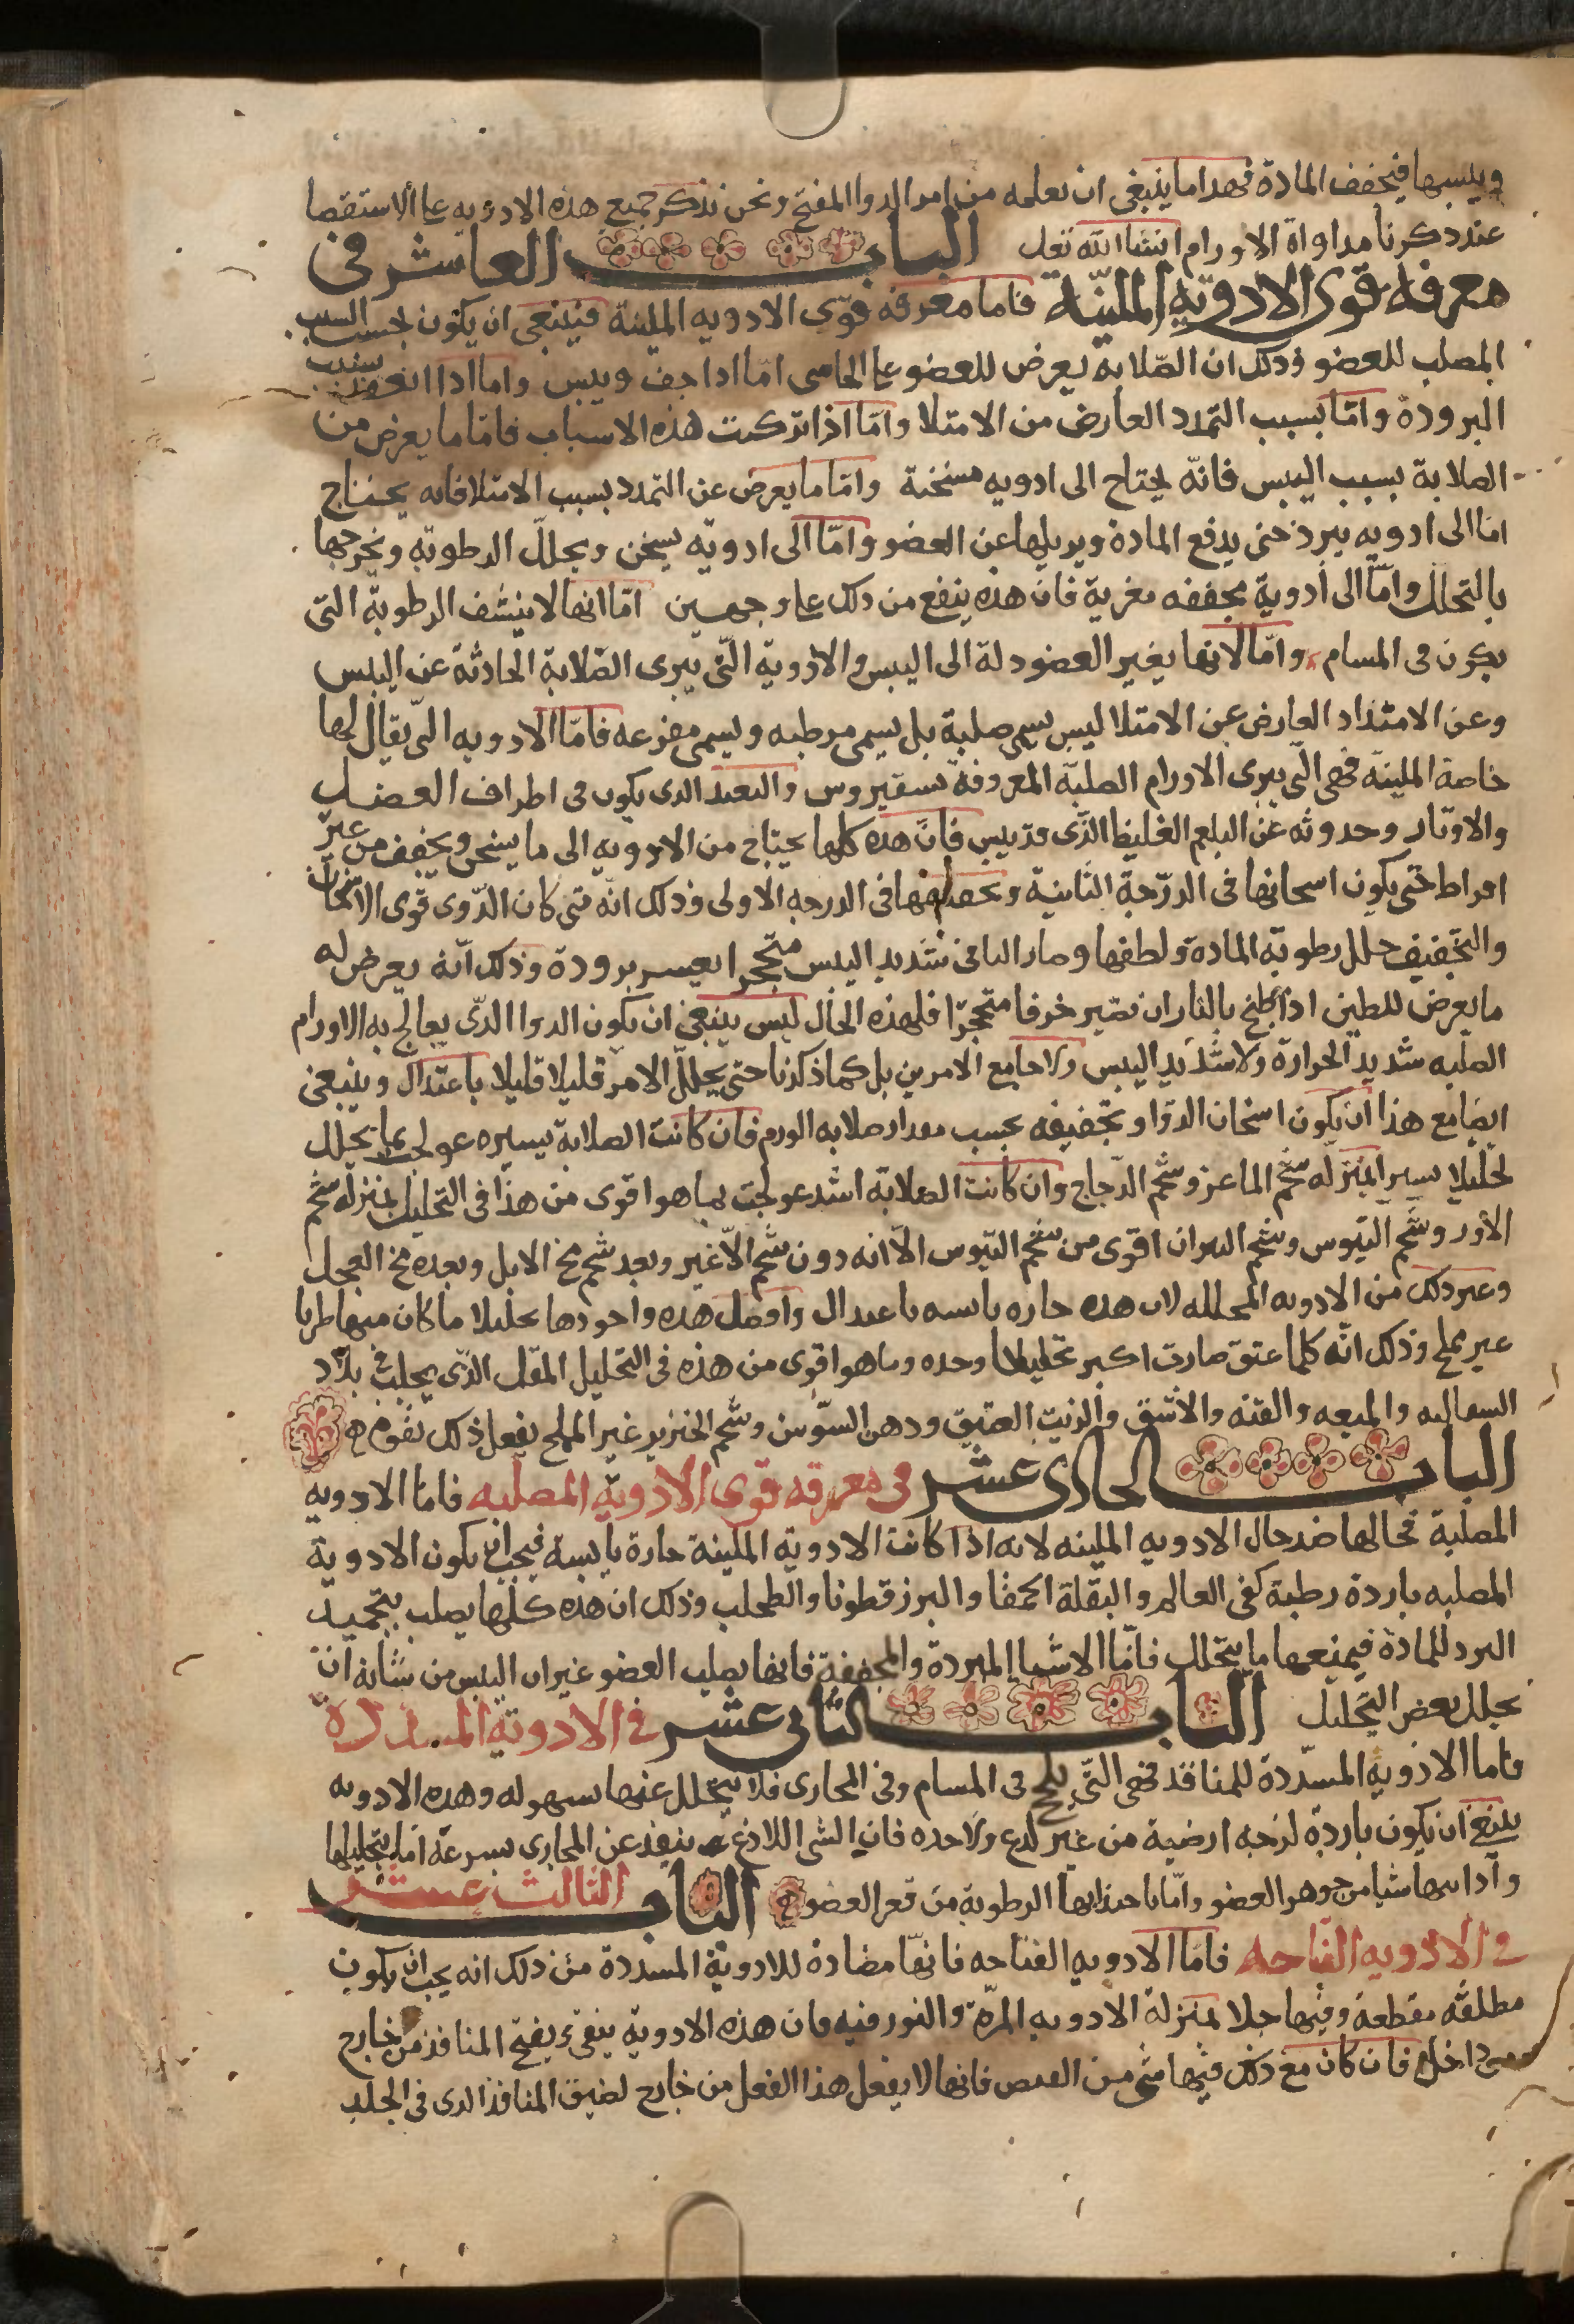 ويلينها فيجفف المادة فهدا ما ينبغى ان تعلمه من امر الدوا المفتح ونحن نذكر جميع هذه الادويه على الاستقصا
عند ذكرنا مداواة الاورام انشا الله تعلى الباب العاشر فى
معرفه قوى الادويه الملينة فاما معرفه قوى الادويه الملينة فينبغى ان يكون بحسب السبب
المصلب للعضو وذلك ان الصلابه يعرض للعضو على الجاسى امّا اذا جف ويبس واما اذا انعقد بسبب
البرودة وامّا بسبب التمدد العارض من الامتلا وامّا اذا تركبت هذه الاسباب فامّا ما يعرض من
الصلابة بسبب اليبس فانّه يحتاج الى ادويه مسخنة وامّا ما يعرض عن التمدد بسبب الامتلا فانه يحتاج
امّا الى ادويه يبرد حتى يدفع المادة ويزيلها عن العضو وامّا الى ادويّه يسخن ويحلل الرطوبة ويخرجها
بالتحلل وامّا الى أدوية مجففه مغرية فان هذه ينفع من ذلك على وجهين امّا انها لا ينشف الرطوبة التى
يكون فى المسام وامّا لانها يغير العضو دلة الى اليبس والادوية التى يبرى الصّلابة الحادثة عن اليبس
وعن الامتداد العارض عن الامتلا ليس يسمى صلبة بل يسمى مرطبه ويسمى مفرغه فامّا الادويه التى يقال لها
خاصة الملينة فهى التى يبرى الاورام الصلبة المعروفة بسقيروس والتعقد الدى يكون فى اطراف العضل
والاوتار وحدوثه عن البلغم الغليظ الذى قد يبس فانّ هذه كلها يحتاج من الادويه الى ما يسخن ويجفف من غير
افراط حتى يكون اسخانها فى الدرّجة الثانية وتجفيفها فى الدرجه الاولى وذلك انّه متى كان الدوى قوى الاسخان
والتجفيف حلل رطوبّة المادة ولطفها وصار الباقى شديد اليبس متحجرا بعسر برودة وذلك انّه يعرض له
ما يعرض للطين اذا طبخ بالنار ان تصّير خرفا متحجرّا فلهذه الحال ليس ينبغى ان يكون الدوا الدّى يعالج به الاورام
الصلبه شديد الحرارة ولا شديد اليبس ولا جامع الامرين بل كما ذكرنا حتى يحللّ الامر قليلا قليلا باعتدال وينبغى
ايضا مع هذا ان يكون اسخان الدوّا وتجفيفه بحسب مقدار صلابه الورم فان كانت الصلابة يسيره عولج بما يحلل
تحليلا يسيرا بمنزله شحم الماعز وشحم الدّجاج وان كانت الصلابّه اشد عولجت بما هو اقوى من هذا فى التحليل بمنزله شحم
الأوز وشحم التيوس وشحم الثيران اقوى من شحم التيوس الّا انه دون شحم الاّ غير وبعد شحم مخ الايل وبعده مخ العجل
وغير ذلك من الادويه المحلله لان هذه حاره يابسه باعتدال وافضل هذه واجودها تحليلا ما كان منها طريا
غير مملح وذلك انّه كلما عتق صارت اكبر تحليلا وحده وما هو اقوى من هذه فى التحليل المقل الذّى يجلب من بلاد
السقالبه والميعه والقنه والاشق والزيت العتيق ودهن السوّسن وشحم الخنزير غير المملح يفعل ذلك
الباب الحادى عشر فى معرفه قوى الادويّة المصلّبه فامّا الادويه
المصلّبة فحالها ضد حال الادويه الملينه لانه اذا كانت الادويّة الملّينة حارة يابسة فيجب ان يكون الادوية
المصلبه باردة رطبة كحى العالم والبقلة الحمقا والبزرقطونا والطحلب وذلك ان هذه كلّها يصلب بتجميد
البرد للمادة فيمنعها ما يتحلل فامّا الاشيا المبردة والمجففة فانها يصلب العضو غير ان اليبس من شانه ان
يحلل بعض التحليل الباب الثانى عشر فى الادويّة المسددة
فاما الادويّة المسدّدة للمنافد فهى التى يلحج فى المسام وفى المجارى فلا يتحلل عنها بسهوله وهذه الادويه
ينبغى ان يكون باردة لزجه ارضية من غير لدع ولا حده فان الشى اللادغ ينفذ عن المجارى بسرعة امّا بتحليلها
واذابتها شيا من جوهر العضو وامّا باجتذابها الرطوبة من قعر العضو الباب الثالث عشر
فى الادويه الفتاحه فامّا الادويه الفتاحه فانهّا مضادة للادوية المسددة من ذلك انه يجب ان يكون
مطلقّه مقطعة وفيها جلا بمنزلة الادويه المرّة والبورقيه فان هذه الادوية ينقى ويفتح المنافذ من خارج
ومن داخل فان كان مع ذلك فيها شى من القبض فانها لا يفعل هذا الفعل من خارج لضيق المنافذ الدى فى الجلد